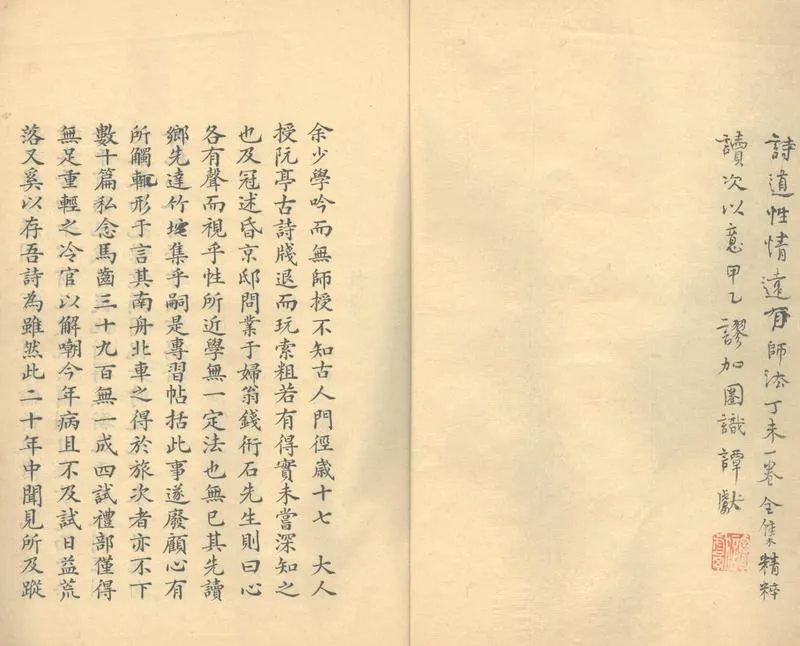 詩道性情遠有師法丁未一卷全集精粹
讀次以意甲乙謬加圈識譚獻
余少學吟而無師授不知古人門徑歲十七　大人
授阮亭古詩牋退而玩索粗若有得實未嘗深知之
也及冠述昏京邸問業于婦翁錢衎石先生則曰心
各有聲而視乎性所近學無一定法也無已其先讀
鄉先達竹垞集乎嗣是專習帖括此事遂廢顧心有
所觸輒形于言其南舟北車之得於旅次者亦不下
數十篇私念馬齒三十九百無一成四試禮部僅得
無足重輕之冷官以解嘲今年病且不及試日益荒
落又奚以存吾詩為雖然此二十年中聞見所及蹤